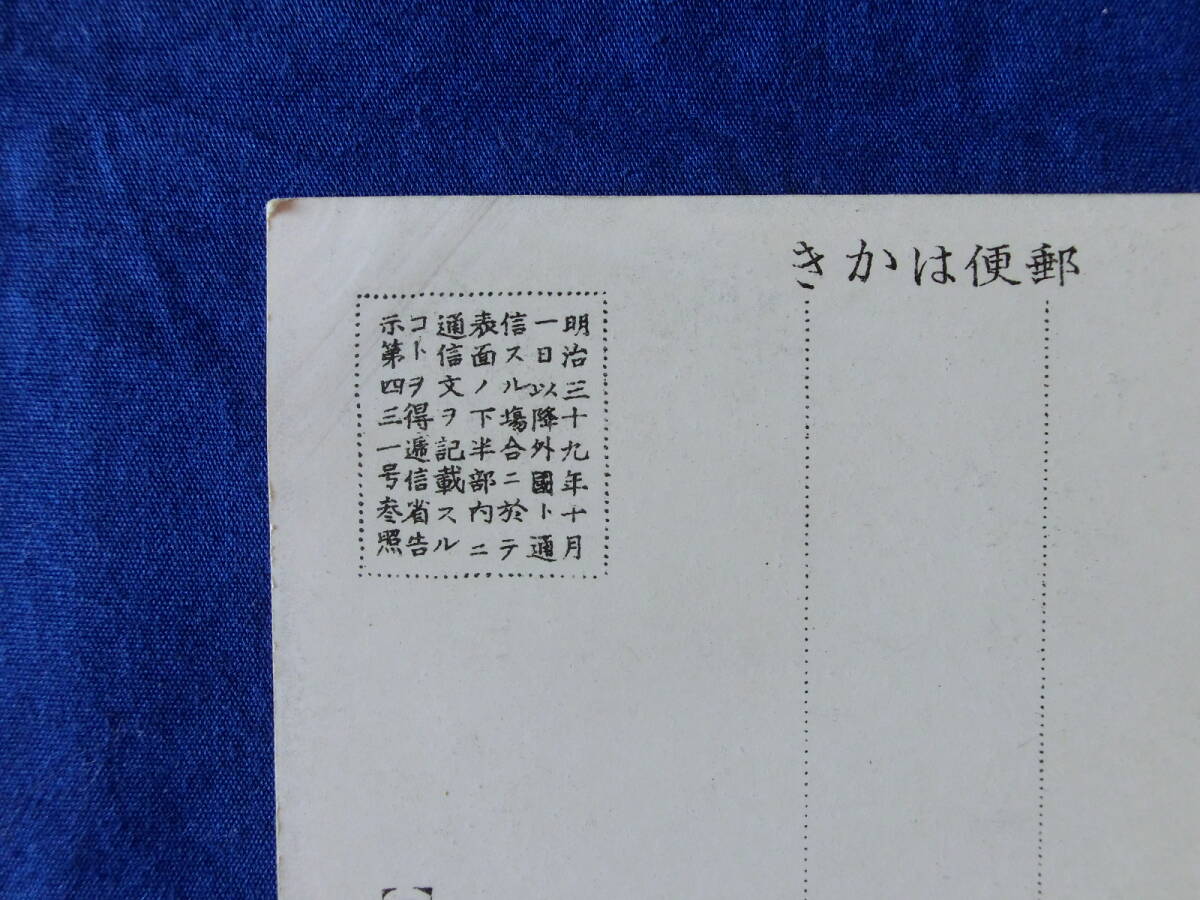 郵便はかき
明治三十九年十月
一日以降外國ト通
信スル場合ニ於テ
表面ノ下半部内ニ
通信文ヲ記載スル
コトヲ得遞信省告
示第四三一号参照